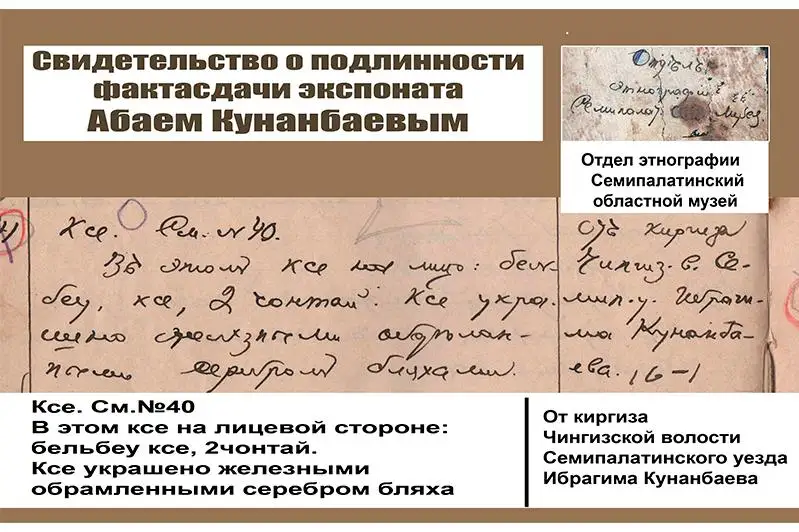 Свидетельство о подлинности
фактасдачи экспоната
Абаем Кунанбаевым
Отдѣлъ
этнографіи
Семипалат. музея.
Отдел этнографии
Семипалатинский
областной музей
Ксе. См. №40.
Въ этомъ ксе лицо: бель-
беу, ксе, 2 чонтай. Ксе укра-
шено желѣзными обрамлен-
ными серебромъ бляхами.
Отъ киргиза
Чингиз. в. Се-
мип. у. Ибраги-
ма Кунанба-
ева. 16-1
Ксе. См.№40
В этом ксе на лицевой стороне:
бельбеу ксе, 2чонтай.
Ксе украшено железными
обрамленными серебром бляха
От киргиза
Чингизской волости
Семипалатинского уезда
Ибрагима Кунанбаева